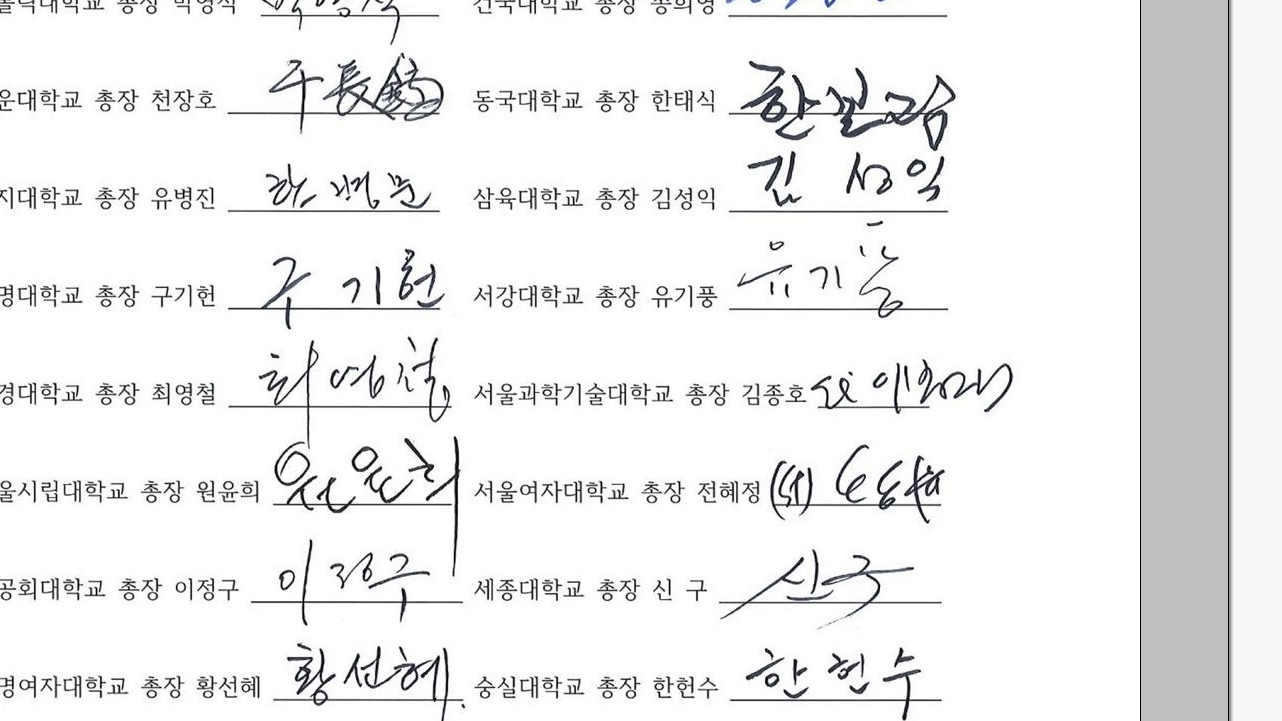 톨릭대학교 총장 박영식 건국대학교 총장 송희영
운대학교 총장 천장호 동국대학교 총장 한태식
지대학교 총장 유병진 삼육대학교 총장 김성익 김 성익
명대학교 총장 구기헌 구 기헌 서강대학교 총장 유기풍 유기풍
경대학교 총장 최영철 최영철 서울과학기술대학교 총장 김종호
울시립대학교 총장 원윤희 원윤희 서울여자대학교 총장 전혜정
공회대학교 총장 이정구 이정구 세종대학교 총장 신 구 신구
명여자대학교 총장 황선혜 황선혜 숭실대학교 총장 한헌수 한헌수